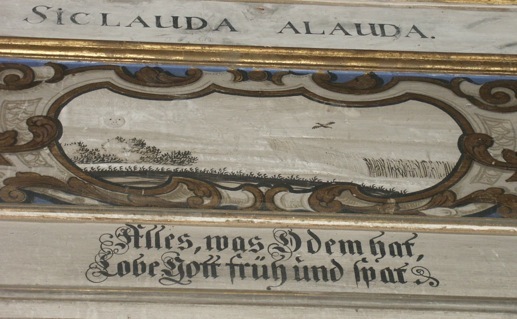 SIC LAUDA, ALAUDA.
Alles, was Odem hat
lobe Gott früh und spat.